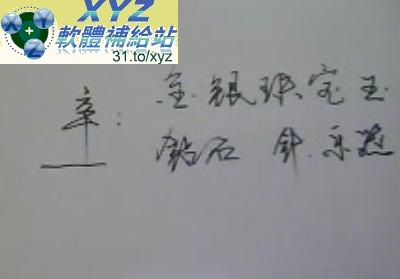 XYZ
軟體補給站
31.to/xyz
辛:
金银珠宝玉
鉆石 針.乐器